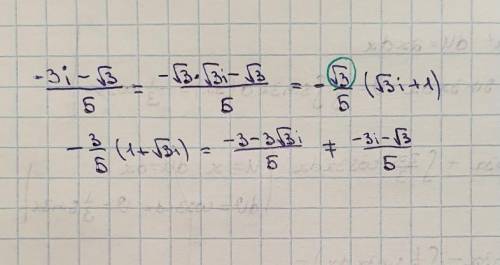 (-3i-√3)/5 = (-√3·√3i-√3)/5 = -√3/5 (√3i+1)
-3/5 (1+√3i) = (-3-3√3i)/5 ≠ (-3i-√3)/5